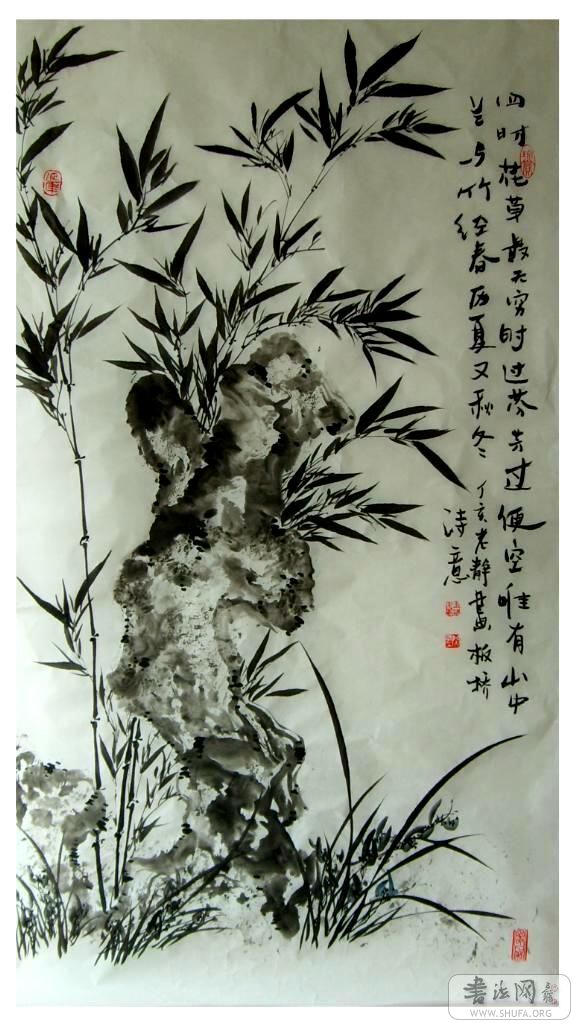 四时花草最无穷时过芬芳过便空唯有山中
兰与竹经春历夏又秋冬
丁亥老静畫板桥
诗意
書法网
WWW.SHUFA.ORG